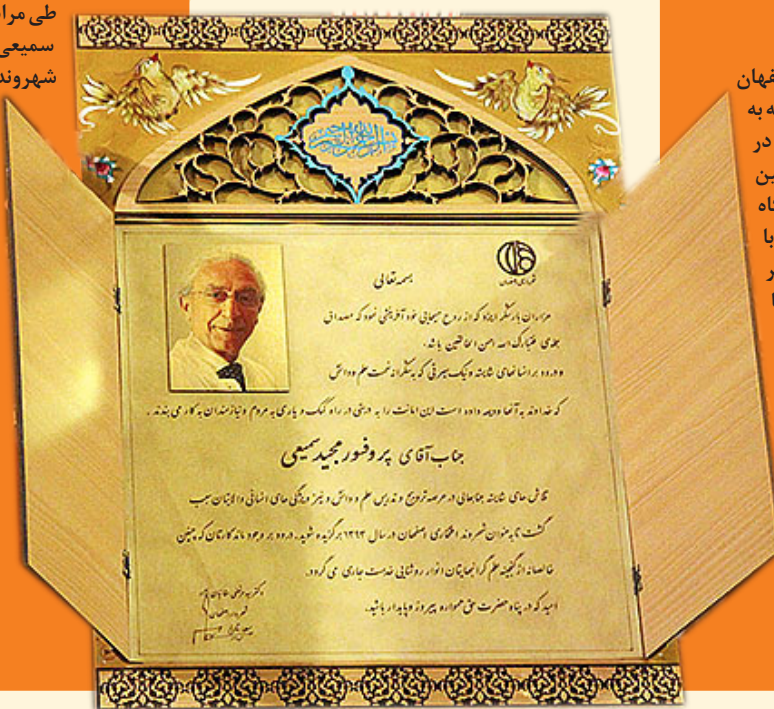 طی مرا
سمیعی
شهروند
فهان
ه به
در
ین
گاه
با
ر
بسمه تعالی
هزاران بار شکر ایزد که از روح مسیحایی خود آفرینشی نمود که مصداق
جمله‌ی فتبارک الله احسن الخالقین باشد.
و درود بر انسانهای شایسته و نیک سیرتی که بشکرانه نعمت علم و دانش
که خداوند به آنها ودیعه داده است این امانت را به درستی در راه کمک و یاری به مردم و نیازمندان به کار می بندند .
جناب آقای پروفسور مجید سمیعی
تلاش های شایسته جنابعالی در عرصه ترویج و تدریس علم و دانش و نیز ویژگی های انسانی والایتان سبب
گشت تا به عنوان شهروند افتخاری اصفهان در سال ۱۳۹۳ برگزیده شوید. درود بر وجود ماندگارتان که چنین
خالصانه از گنجینه علم گرانبهایتان انوار روشنایی خدمت جاری می گردد.
امید که در پناه حضرت حق همواره پیروز و پایدار باشید.
شهردار اصفهان